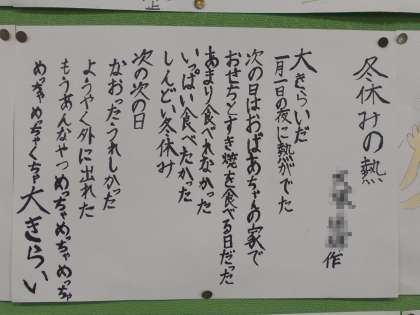 冬休みの熱
作
大きらいだ
一月一日の夜に熱がでた
次の日はおばあちゃんの家で
おせちとすき焼を食べる日だった
あまり食べれなかった
いっぱい食べたかった
しんどい冬休み
次の次の日
なおったうれしかった
ようやく外に出れた
もうあんなやつめっちゃめっちゃめっちゃ
めっちゃめっちゃくちゃ大きらい
上